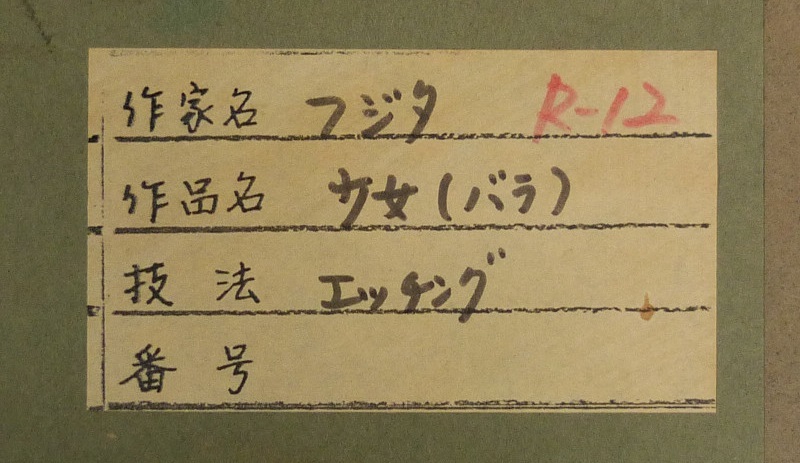 作家名 フジタ R-12
作品名 少女(バラ)
技法 エッチング
番号